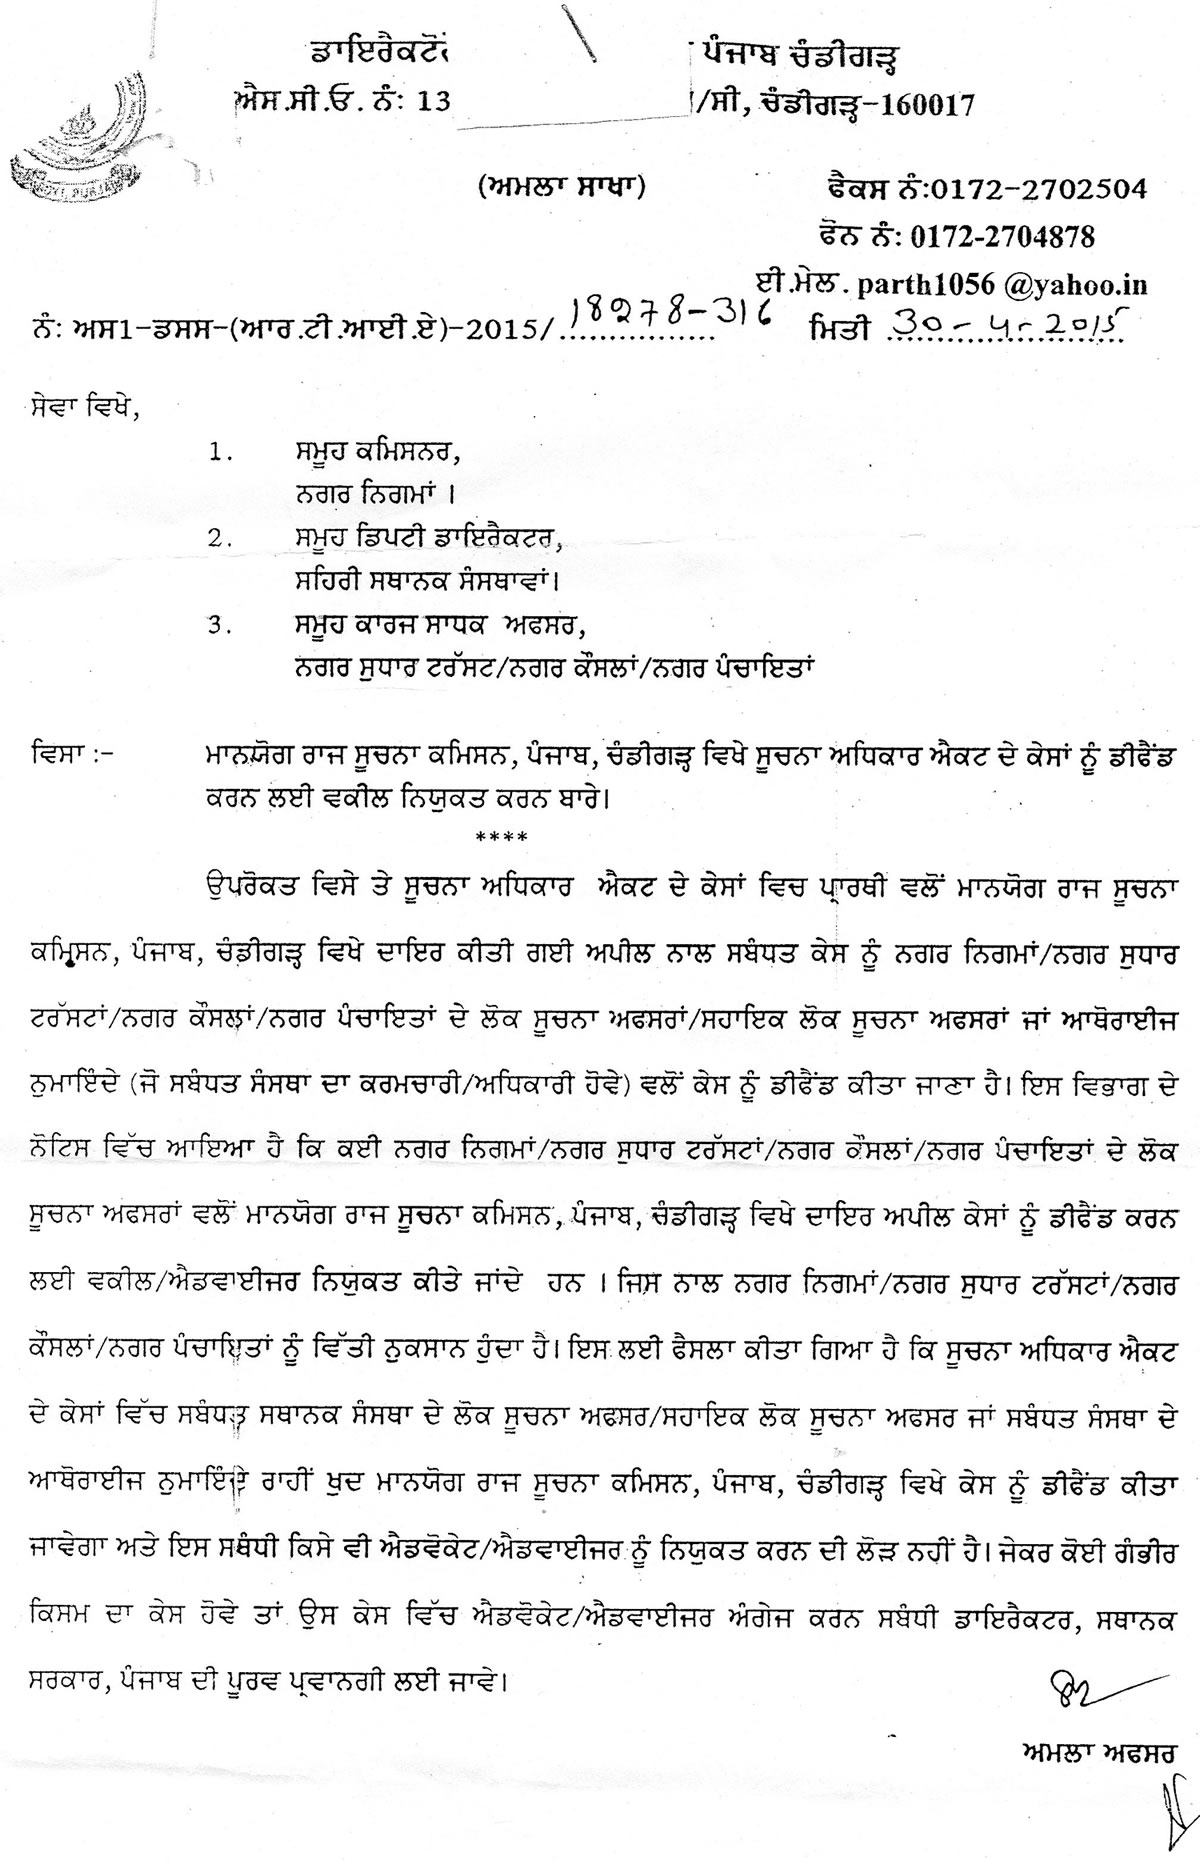 ਪੰਜਾਬ ਚੰਡੀਗੜ੍ਹ
ਐਸ.ਸੀ.ਓ. ਨੰ: 13 /ਸੀ, ਚੰਡੀਗੜ੍ਹ-160017
(ਅਮਲਾ ਸਾਖਾ)
ਫੈਕਸ ਨੰ:0172-2702504
ਫੋਨ ਨੰ: 0172-2704878
ਈ.ਮੇਲ. parth1056 @yahoo.in
ਨੰ: ਅਸ1-ਡਸਸ-(ਆਰ.ਟੀ.ਆਈ.ਏ)-2015/ 18278-316 ਮਿਤੀ 30-4-2015
ਸੇਵਾ ਵਿਖੇ,
1. ਸਮੂਹ ਕਮਿਸਨਰ,
ਨਗਰ ਨਿਗਮਾਂ ।
2. ਸਮੂਹ ਡਿਪਟੀ ਡਾਇਰੈਕਟਰ,
ਸਹਿਰੀ ਸਥਾਨਕ ਸੰਸਥਾਵਾਂ।
3. ਸਮੂਹ ਕਾਰਜ ਸਾਧਕ ਅਫਸਰ,
ਨਗਰ ਸੁਧਾਰ ਟਰੱਸਟ/ਨਗਰ ਕੌਸਲਾਂ/ਨਗਰ ਪੰਚਾਇਤਾਂ
ਵਿਸਾ :- ਮਾਨਯੋਗ ਰਾਜ ਸੂਚਨਾ ਕਮਿਸਨ, ਪੰਜਾਬ, ਚੰਡੀਗੜ੍ਹ ਵਿਖੇ ਸੂਚਨਾ ਅਧਿਕਾਰ ਐਕਟ ਦੇ ਕੇਸਾਂ ਨੂੰ ਡੀਫੈਂਡ
ਕਰਨ ਲਈ ਵਕੀਲ ਨਿਯੁਕਤ ਕਰਨ ਬਾਰੇ।
****
ਉਪਰੋਕਤ ਵਿਸੇ ਤੇ ਸੂਚਨਾ ਅਧਿਕਾਰ ਐਕਟ ਦੇ ਕੇਸਾਂ ਵਿਚ ਪ੍ਰਾਰਥੀ ਵਲੋਂ ਮਾਨਯੋਗ ਰਾਜ ਸੂਚਨਾ
ਕਮਿਸਨ, ਪੰਜਾਬ, ਚੰਡੀਗੜ੍ਹ ਵਿਖੇ ਦਾਇਰ ਕੀਤੀ ਗਈ ਅਪੀਲ ਨਾਲ ਸਬੰਧਤ ਕੇਸ ਨੂੰ ਨਗਰ ਨਿਗਮਾਂ/ਨਗਰ ਸੁਧਾਰ
ਟਰੱਸਟਾਂ/ਨਗਰ ਕੌਸਲਾਂ/ਨਗਰ ਪੰਚਾਇਤਾਂ ਦੇ ਲੋਕ ਸੂਚਨਾ ਅਫਸਰਾਂ/ਸਹਾਇਕ ਲੋਕ ਸੂਚਨਾ ਅਫਸਰਾਂ ਜਾਂ ਆਥੋਰਾਈਜ
ਨੁਮਾਇੰਦੇ (ਜੋ ਸਬੰਧਤ ਸੰਸਥਾ ਦਾ ਕਰਮਚਾਰੀ/ਅਧਿਕਾਰੀ ਹੋਵੇ) ਵਲੋਂ ਕੇਸ ਨੂੰ ਡੀਫੈਂਡ ਕੀਤਾ ਜਾਣਾ ਹੈ। ਇਸ ਵਿਭਾਗ ਦੇ
ਨੋਟਿਸ ਵਿੱਚ ਆਇਆ ਹੈ ਕਿ ਕਈ ਨਗਰ ਨਿਗਮਾਂ/ਨਗਰ ਸੁਧਾਰ ਟਰੱਸਟਾਂ/ਨਗਰ ਕੌਸਲਾਂ/ਨਗਰ ਪੰਚਾਇਤਾਂ ਦੇ ਲੋਕ
ਸੂਚਨਾ ਅਫਸਰਾਂ ਵਲੋਂ ਮਾਨਯੋਗ ਰਾਜ ਸੂਚਨਾ ਕਮਿਸਨ, ਪੰਜਾਬ, ਚੰਡੀਗੜ੍ਹ ਵਿਖੇ ਦਾਇਰ ਅਪੀਲ ਕੇਸਾਂ ਨੂੰ ਡੀਫੈਂਡ ਕਰਨ
ਲਈ ਵਕੀਲ/ਐਡਵਾਈਜਰ ਨਿਯੁਕਤ ਕੀਤੇ ਜਾਂਦੇ ਹਨ । ਜਿਸ ਨਾਲ ਨਗਰ ਨਿਗਮਾਂ/ਨਗਰ ਸੁਧਾਰ ਟਰੱਸਟਾਂ/ਨਗਰ
ਕੌਸਲਾਂ/ਨਗਰ ਪੰਚਾਇਤਾਂ ਨੂੰ ਵਿੱਤੀ ਨੁਕਸਾਨ ਹੁੰਦਾ ਹੈ। ਇਸ ਲਈ ਫੈਸਲਾ ਕੀਤਾ ਗਿਆ ਹੈ ਕਿ ਸੂਚਨਾ ਅਧਿਕਾਰ ਐਕਟ
ਦੇ ਕੇਸਾਂ ਵਿੱਚ ਸਬੰਧਤ ਸਥਾਨਕ ਸੰਸਥਾ ਦੇ ਲੋਕ ਸੂਚਨਾ ਅਫਸਰ/ਸਹਾਇਕ ਲੋਕ ਸੂਚਨਾ ਅਫਸਰ ਜਾਂ ਸਬੰਧਤ ਸੰਸਥਾ ਦੇ
ਆਥੋਰਾਈਜ ਨੁਮਾਇੰਦੇ ਰਾਹੀਂ ਖੁਦ ਮਾਨਯੋਗ ਰਾਜ ਸੂਚਨਾ ਕਮਿਸਨ, ਪੰਜਾਬ, ਚੰਡੀਗੜ੍ਹ ਵਿਖੇ ਕੇਸ ਨੂੰ ਡੀਫੈਂਡ ਕੀਤਾ
ਜਾਵੇਗਾ ਅਤੇ ਇਸ ਸਬੰਧੀ ਕਿਸੇ ਵੀ ਐਡਵੋਕੇਟ/ਐਡਵਾਈਜਰ ਨੂੰ ਨਿਯੁਕਤ ਕਰਨ ਦੀ ਲੋੜ ਨਹੀਂ ਹੈ। ਜੇਕਰ ਕੋਈ ਗੰਭੀਰ
ਕਿਸਮ ਦਾ ਕੇਸ ਹੋਵੇ ਤਾਂ ਉਸ ਕੇਸ ਵਿੱਚ ਐਡਵੋਕੇਟ/ਐਡਵਾਈਜਰ ਅੰਗੇਜ ਕਰਨ ਸਬੰਧੀ ਡਾਇਰੈਕਟਰ, ਸਥਾਨਕ
ਸਰਕਾਰ, ਪੰਜਾਬ ਦੀ ਪੂਰਵ ਪ੍ਰਵਾਨਗੀ ਲਈ ਜਾਵੇ।
ਅਮਲਾ ਅਫਸਰ